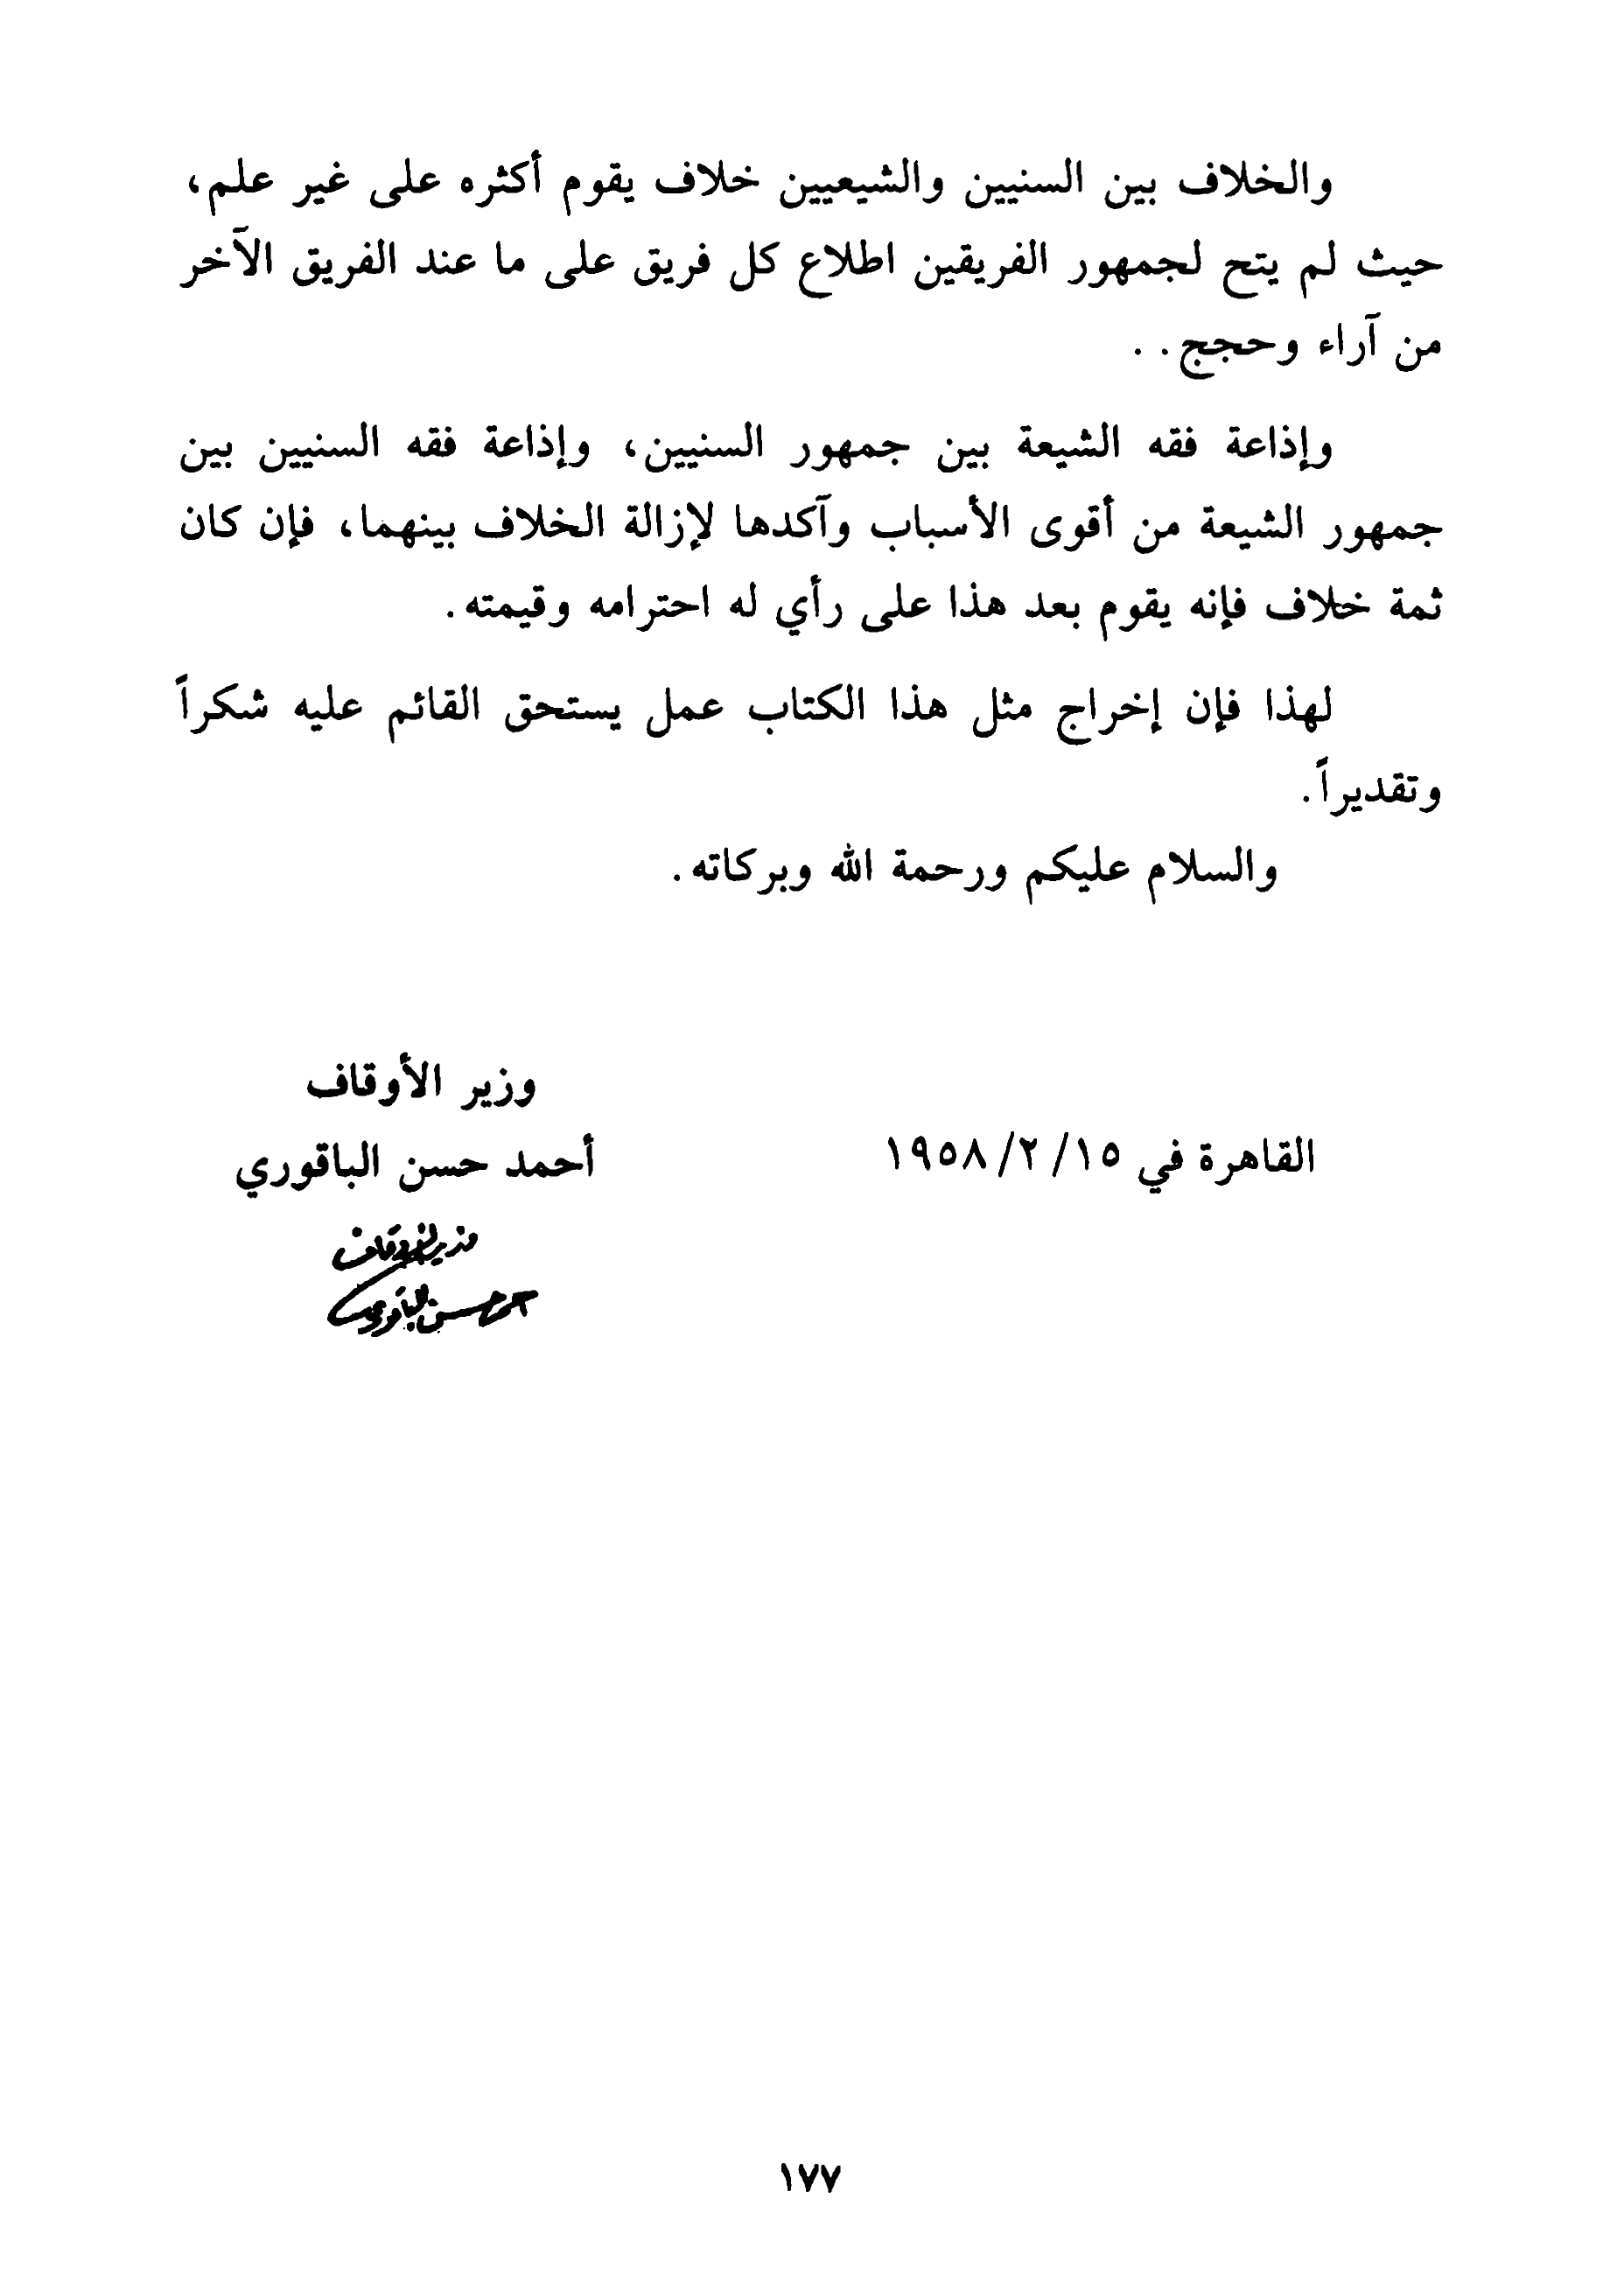 والخلاف بين السنيين والشيعيين خلاف يقوم أكثره على غير علم،
حيث لم يتح لجمهور الفريقين اطلاع كل فريق على ما عند الفريق الآخر
من آراء وحجج..
وإذاعة فقه الشيعة بين جمهور السنيين، وإذاعة فقه السنيين بين
جمهور الشيعة من أقوى الأسباب وآكدها لإزالة الخلاف بينهما، فإن كان
ثمة خلاف فإنه يقوم بعد هذا على رأي له احترامه وقيمته.
لهذا فإن إخراج مثل هذا الكتاب عمل يستحق القائم عليه شكراً
وتقديراً.
والسلام عليكم ورحمة الله وبركاته.
وزير الأوقاف
القاهرة في ١٥/ ٢/ ١٩٥٨
أحمد حسن الباقوري
وزير الأوقاف
أحمد حسن الباقوري
١٧٧